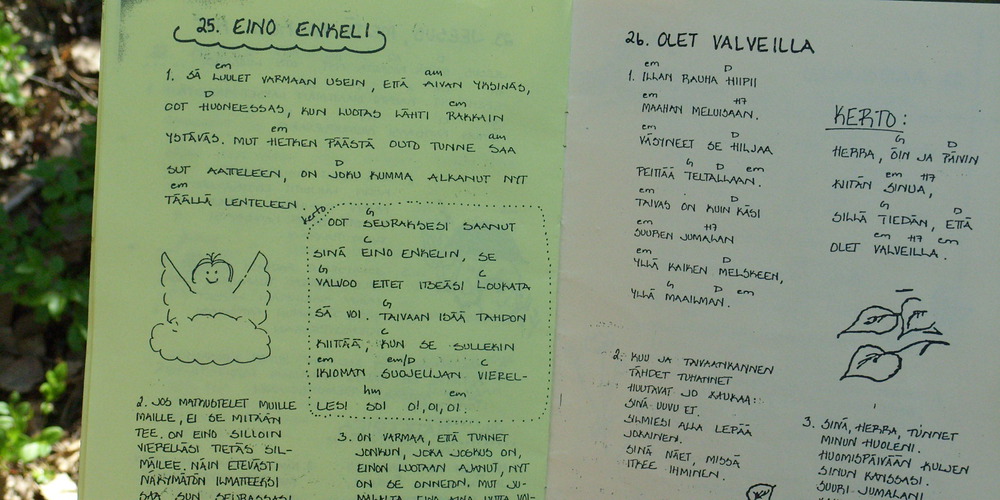 25. EINO ENKELI
em am
1. SÄ LUULET VARMAAN USEIN, ETTÄ AIVAN YKSINÄS,
D em
OOT HUONEESSAS, KUN LUOTAS LÄHTI RAKKAIN
em am
YSTÄVÄS. MUT HETKEN PÄÄSTÄ OUTO TUNNE SAA
D
SUT AATTELEEN, ON JOKU KUMMA ALKANUT NYT
em
TÄÄLLÄ LENTELEEN.
kerto
G
OOT SEURAKSESI SAANUT
C
SINÄ EINO ENKELIN, SE
G C
VALVOO ETTET ITSEÄSI LOUKATA
G
SÄ VOI. TAIVAAN ISÄÄ TAHDON
C
KIITTÄÄ, KUN SE SULLEKIN
em em/D C
IKIOMAN SUOJELIJAN VIEREL-
hm em
LESI SOI OI, OI, OI.
2. JOS MATKUSTELET MUILLE
MAILLE, EI SE MITÄÄN
TEE. ON EINO SILLOIN
VIERELLÄSI TIETÄS SIL-
MÄILEE. NÄIN ETEVÄSTI
NÄKYMÄTÖN ILMATTEEKSI
SAA SUN SEURASSASI
3. ON VARMAA, ETTÄ TUNNET
JONKUN, JOKA JOSKUS ON,
EINON LUOTAAN AJANUT, NYT
ON SE ONNETON. MUT JU-
26. OLET VALVEILLA
em D
1. ILLAN RAUHA HIIPII
em H7
MAAHAN MELUISAAN.
em D
VÄSYNEET SE HILJAA
G D em
PEITTÄÄ TELTALLAAN.
em D
TAIVAS ON KUIN KÄSI
H7
SUUREN JUMALAN
em D
YLLÄ KAIKEN MELSKEEN,
G D em
YLLÄ MAAILMAN.
2. KUU JA TAIVAANKANNEN
TÄHDET TUHANNET
HUUTAVAT JO KAUKAA:
SINÄ UUVU ET.
SILMIESI ALLA LEPÄÄ
JOKAINEN.
SINÄ NÄET, MISSÄ
ITKEE IHMINEN.
KERTO:
G D
HERRA, ÖIN JA PÄIVIN
em H7
KIITÄN SINUA,
G D
SILLÄ TIEDÄN, ETTÄ
em H7 em
OLET VALVEILLA.
3. SINÄ, HERRA, TUNNET
MINUN HUOLENI.
HUOMISPÄIVÄÄN KULJEN
SINUN KANSSASI.
SUURI JUMALANI